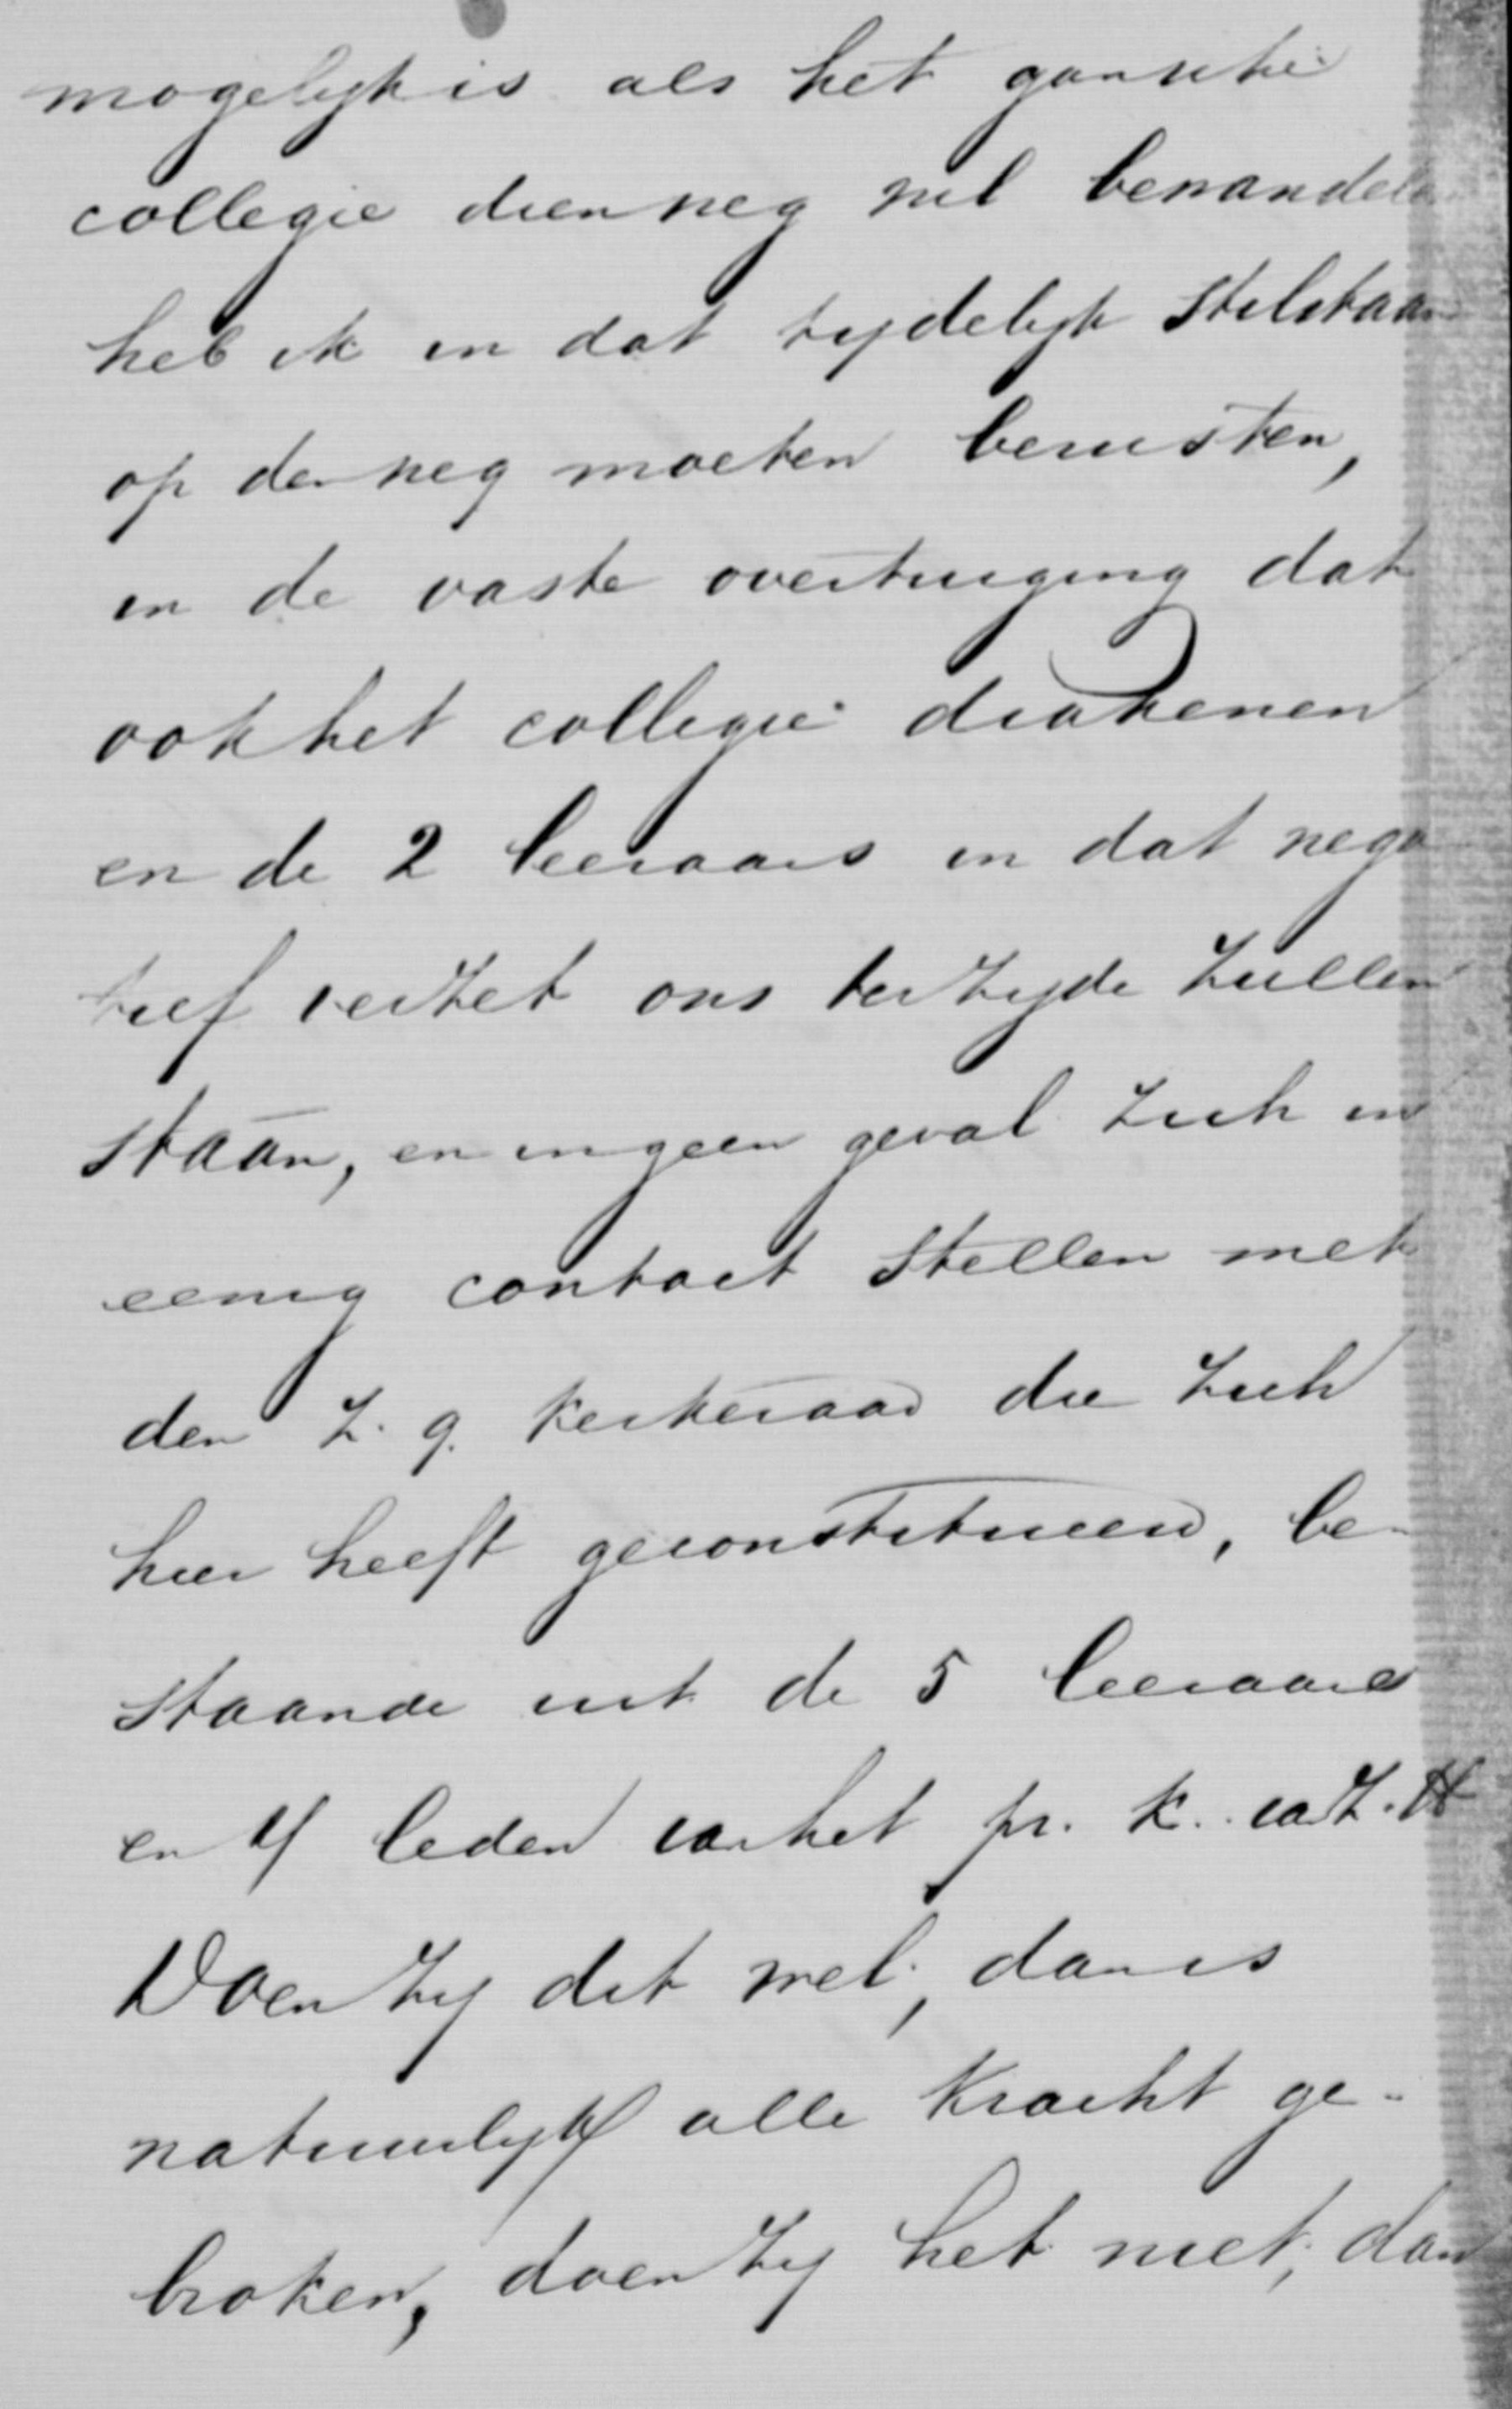 mogelijk is als het gansche
collegie dien weg wil bewandelen
heb ik in dat tijdelijk stilstaan
op den weg moeten berusten,
in de vaste overtuiging dat
ook het collegie diakenen
en de 2 leeraars in dat nega
tief verzet ons ter zijde zullen
staan, en in geen geval zich in
eenig contact stellen met
den z. g. kerkeraad die zich
hier heeft geconstitueerd, be-
staande uit de 5 leeraars
en 4 leden van het pr. k. van Z. H
Doen zij dit wel, dan is
natuurlijk alle kracht ge-
broken, doen zij het niet, dan